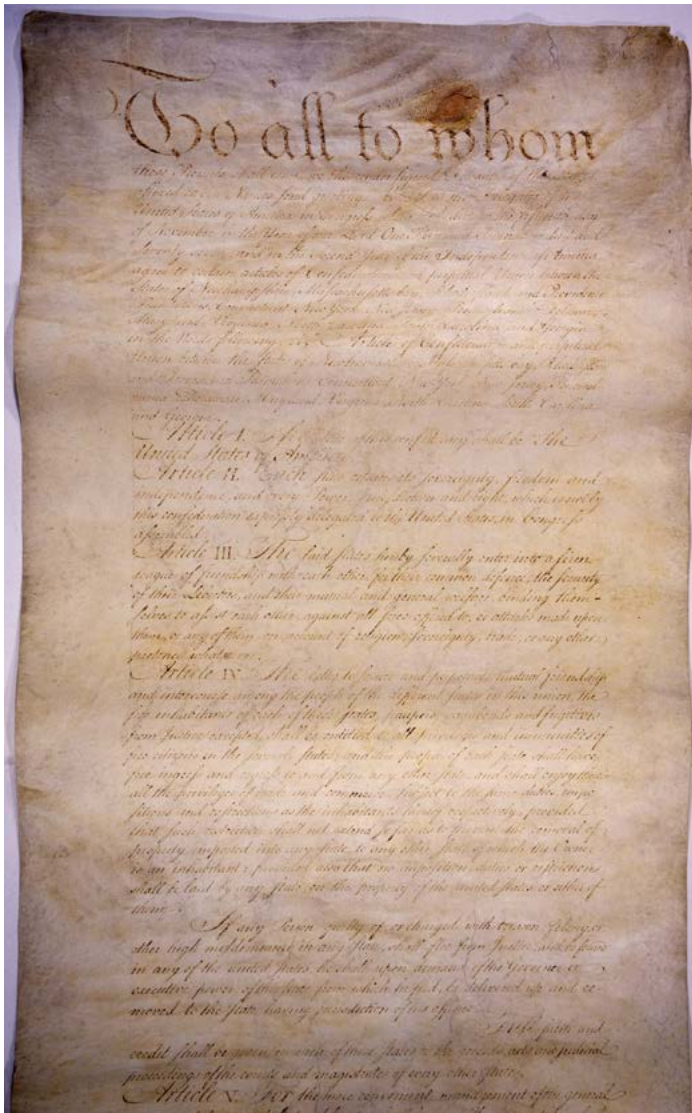 To all to whom
these Presents shall come, we the undersigned Delegates of the States
affixed to our Names send greeting. Whereas the Delegates of the
United States of America in Congress assembled did on the fifteenth day
of November in the Year of our Lord One Thousand Seven Hundred and
Seventy seven, and in the Second Year of the Independence of America
agree to certain articles of Confederation and perpetual Union between the
States of Newhampshire, Massachusetts bay, Rhode Island and Providence
Plantations, Connecticut, New York, New Jersey, Pennsylvania, Delaware,
Maryland, Virginia, North Carolina, South Carolina and Georgia
in the Words following, Articles of Confederation and perpetual
Union between the States of Newhampshire, Massachusetts bay, Rhode Island
and Providence Plantations, Connecticut, New York, New Jersey, Pennsyl
vania, Delaware, Maryland, Virginia, North Carolina, South Carolina
and Georgia.
Article I. The Stile of this confederacy shall be "The
United States of America."
Article II. Each state retains its sovereignty, freedom and
independence, and every Power, Jurisdiction and right, which is not by
this confederation expressly delegated to the United States, in Congress
assembled.
Article III. The said states hereby severally enter into a firm
league of friendship with each other, for their common defence, the security
of their Liberties, and their mutual and general welfare, binding them-
selves to assist each other, against all force offered to, or attacks made upon
them, or any of them, on account of religion, sovereignty, trade, or any other
pretence whatever.
Article IV. The better to secure and perpetuate mutual friendship
and intercourse among the people of the different states in this union, the
free inhabitants of each of these states, paupers, vagabonds and fugitives
from Justice excepted, shall be entitled to all privileges and immunities of
free citizens in the several states; and the people of each state shall have
free ingress and regress to and from any other state, and shall enjoy therein
all the privileges of trade and commerce, subject to the same duties, impo
sitions and restrictions as the inhabitants thereof respectively, provided
that such restriction shall not extend so far as to prevent the removal of
property imported into any state, to any other state, of which the Owner
is an inhabitant; provided also that no imposition, duties or restriction
shall be laid by any state, on the property of the united states, or either of
them.
If any Person guilty of, or charged with treason, felony, or
other high misdemeanor in any state, shall flee from Justice, and be found
in any of the united states, he shall, upon demand of the Governor or
executive power, of the state from which he fled, be delivered up and re-
moved to the state having jurisdiction of his offence.
Full faith and
credit shall be given in each of these states to the records, acts and judicial
proceedings of the courts and magistrates of every other state.
Article V. For the more convenient management of the general